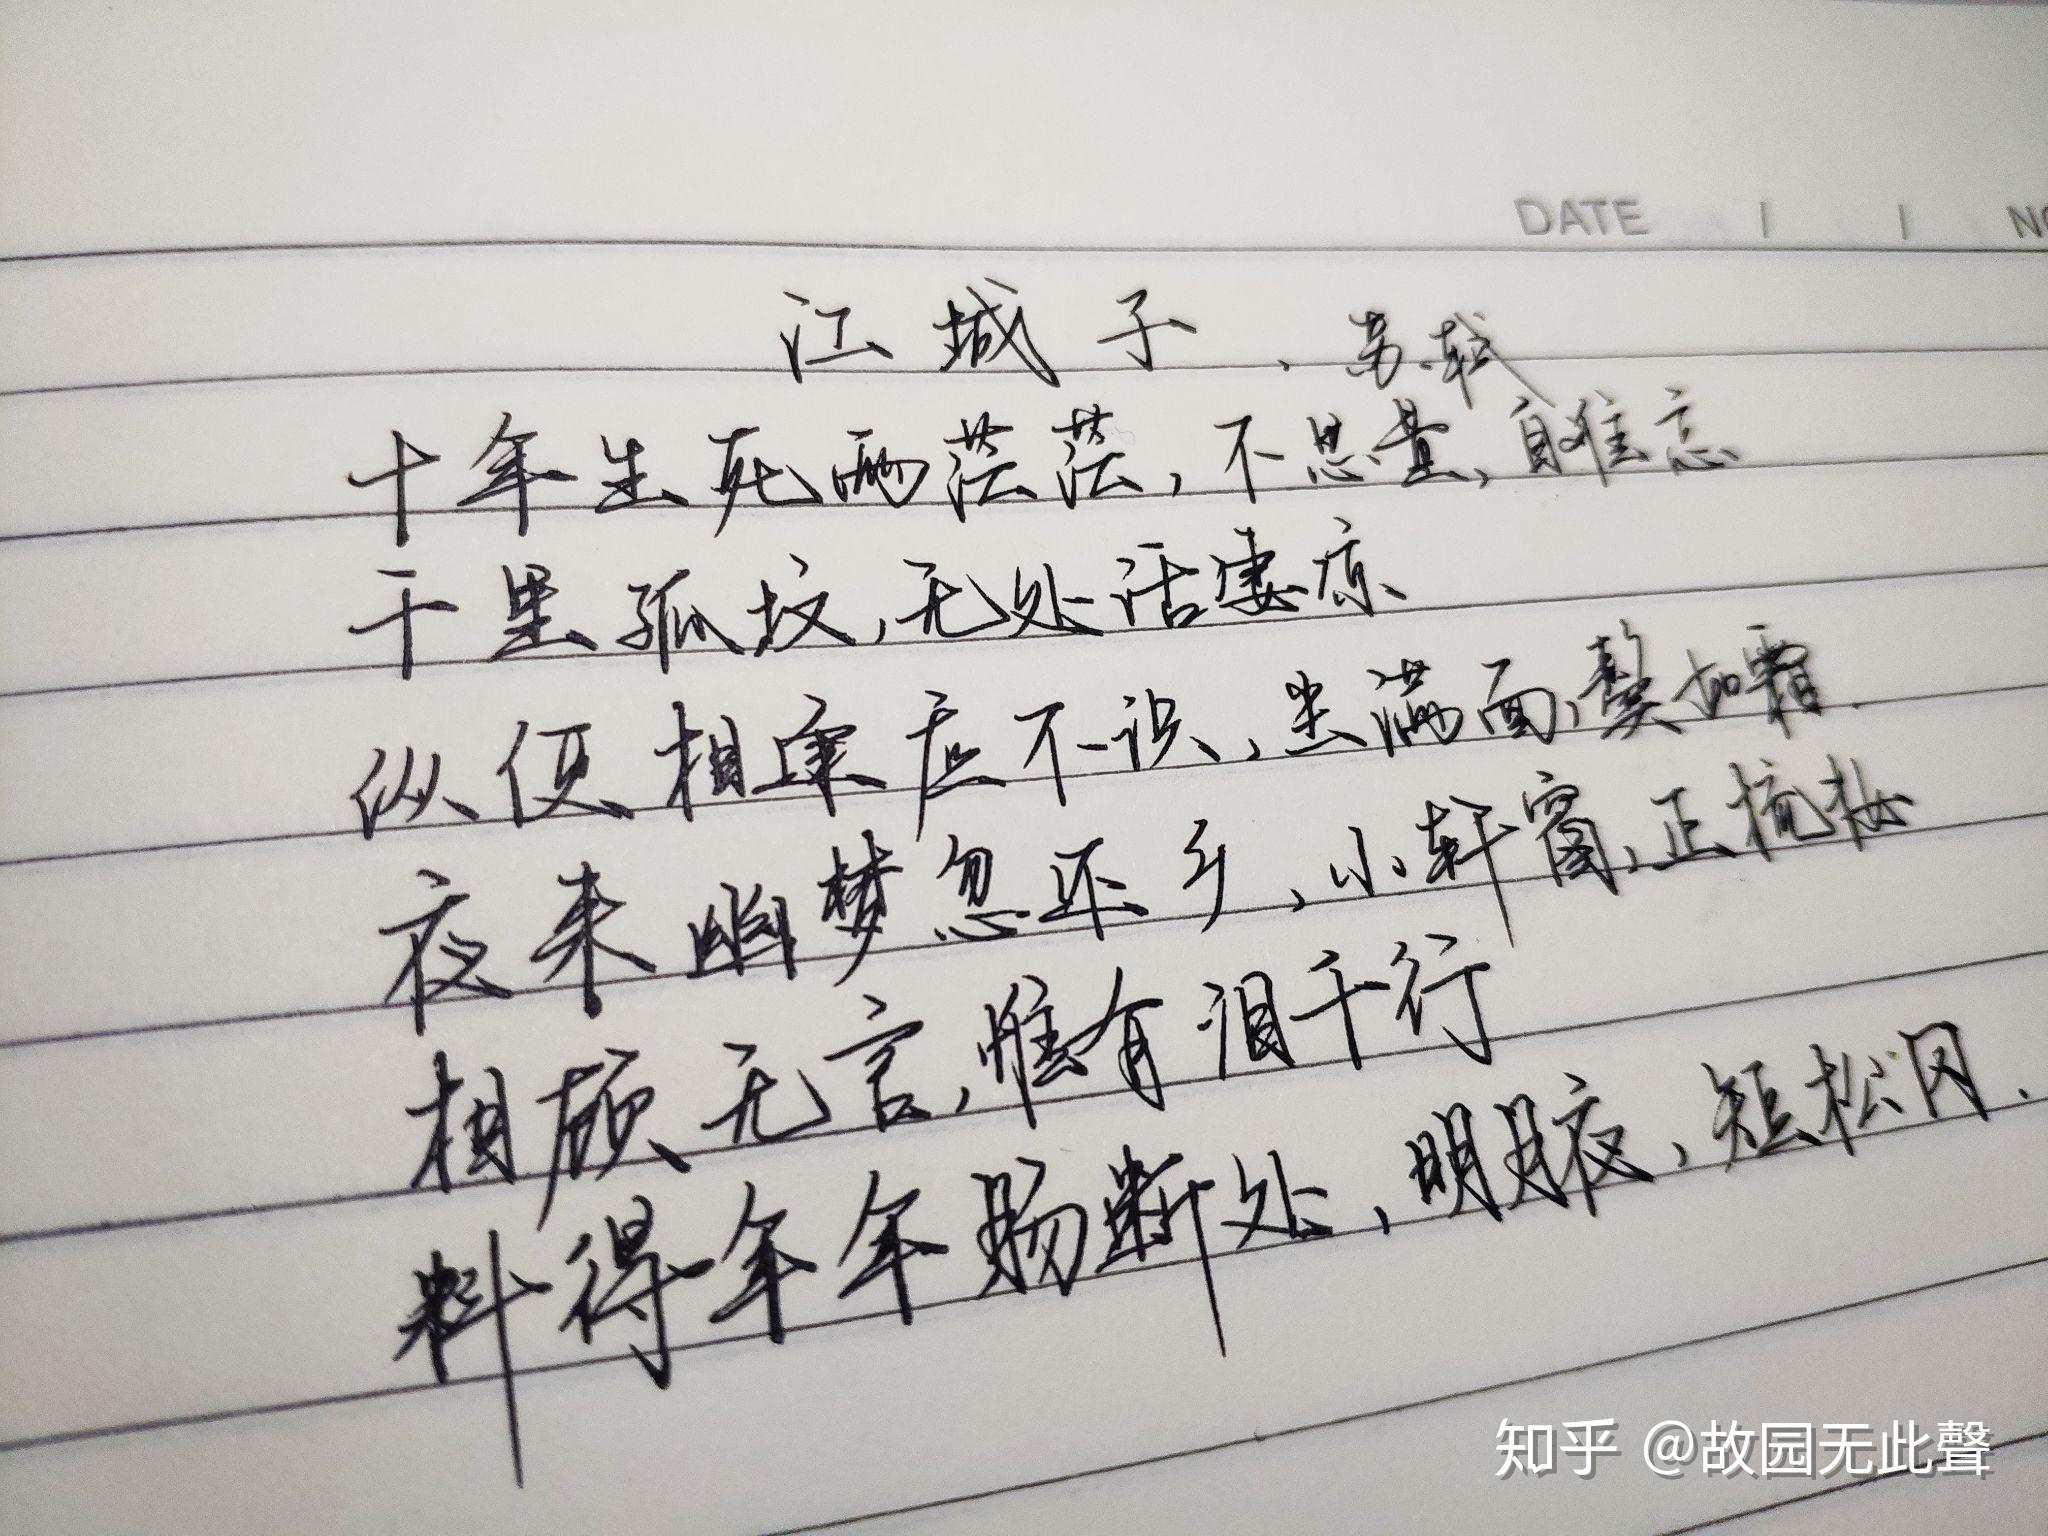 DATE / / NO
江城子、苏轼
十年生死两茫茫，不思量，自难忘
千里孤坟，无处话凄凉
纵使相逢应不识，尘满面，鬓如霜.
夜来幽梦忽还乡，小轩窗，正梳妆
相顾无言，惟有泪千行
料得年年肠断处，明月夜，短松冈.
知乎 @故园无此聲